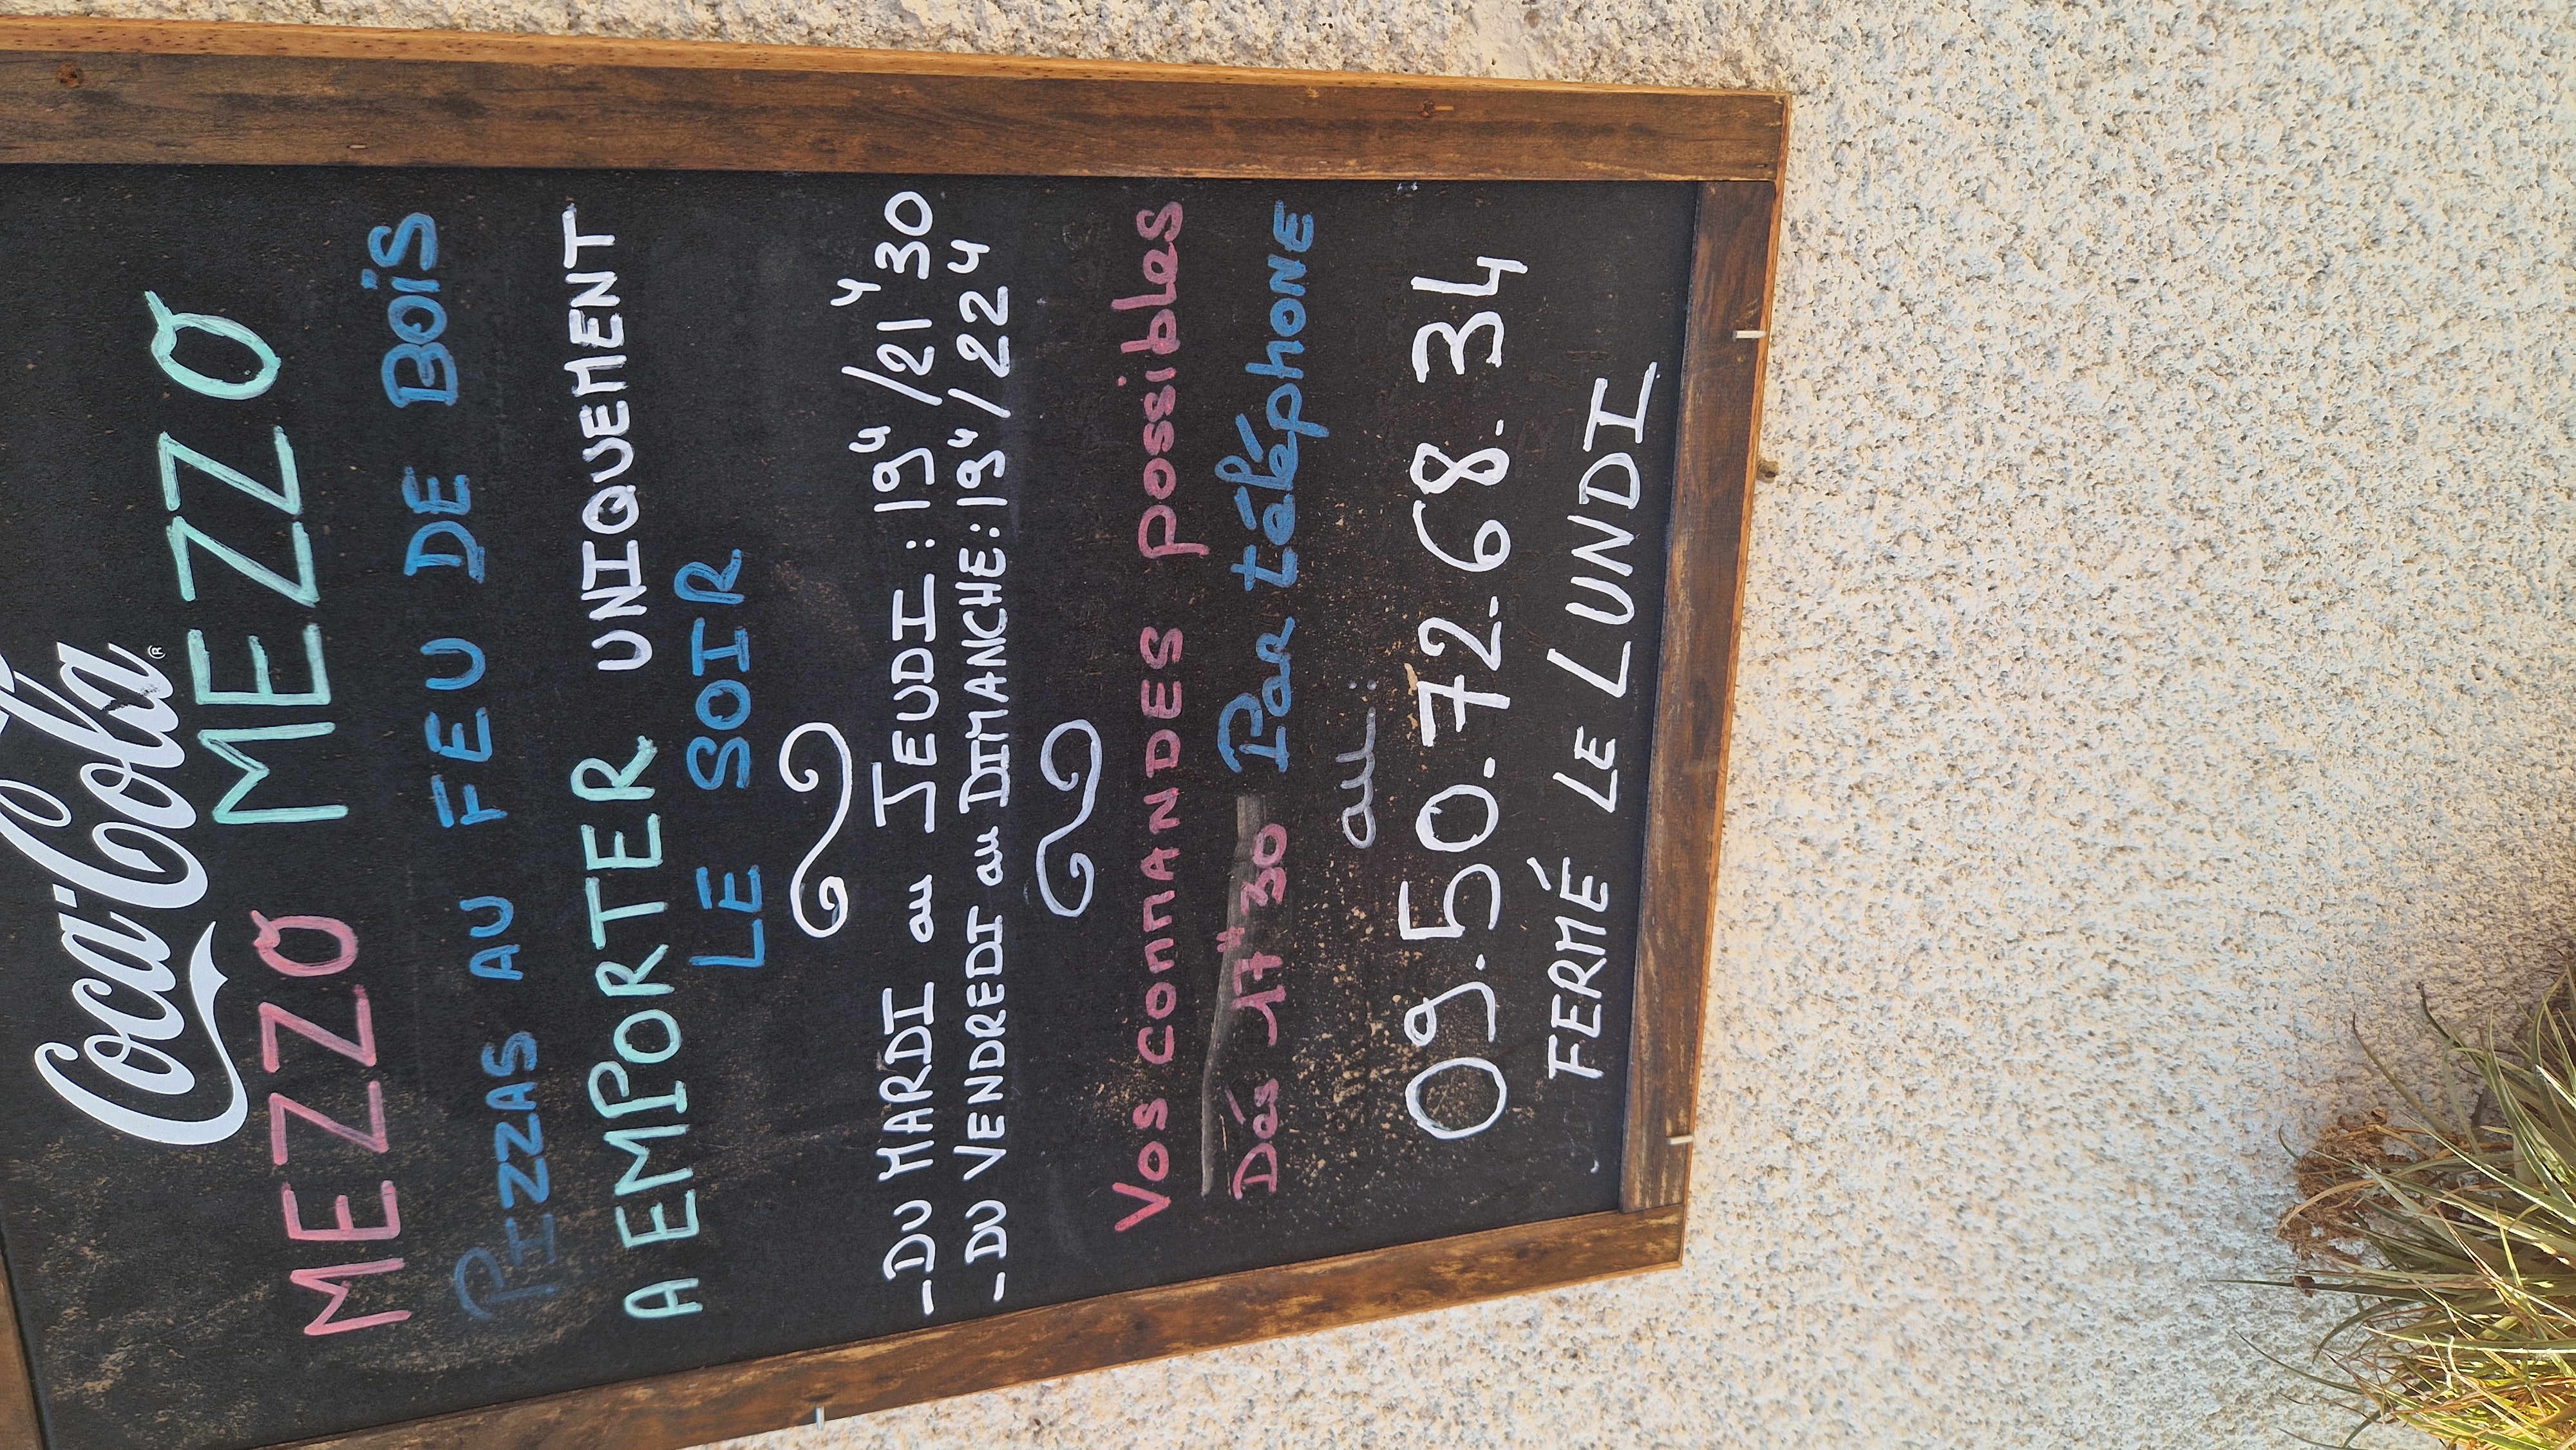 Coca-Cola®
MEZZO MEZZO
PIZZAS AU FEU DE BOiS
A EMPORTER UNIQUEMENT
LE SOIR
-DU MARDI au JEUDI : 19H/21H30
-DU VENDREDI au DIMANCHE : 19H/22H
Vos COMMANDES possibles
Dès 17H30 Par téléphONE
au :
09.50.72.68.34
FERMÉ LE LUNDI